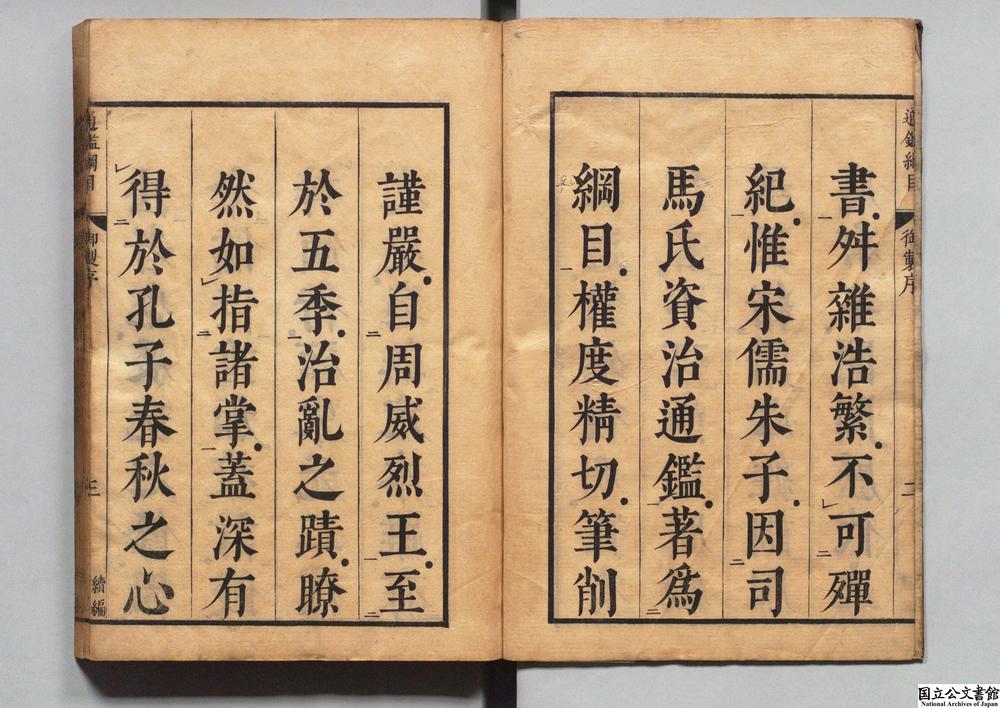 通鑑綱目
御製序
二
書舛雜浩繁不可殫
紀惟宋儒朱子因司
馬氏資治通鑑著爲
綱目權度精切筆削
謹嚴自周威烈王至
於五季治亂之蹟瞭
然如指諸掌蓋深有
得於孔子春秋之心
通鑑綱目
御製序
三
續編
国立公文書館
National Archives of Japan